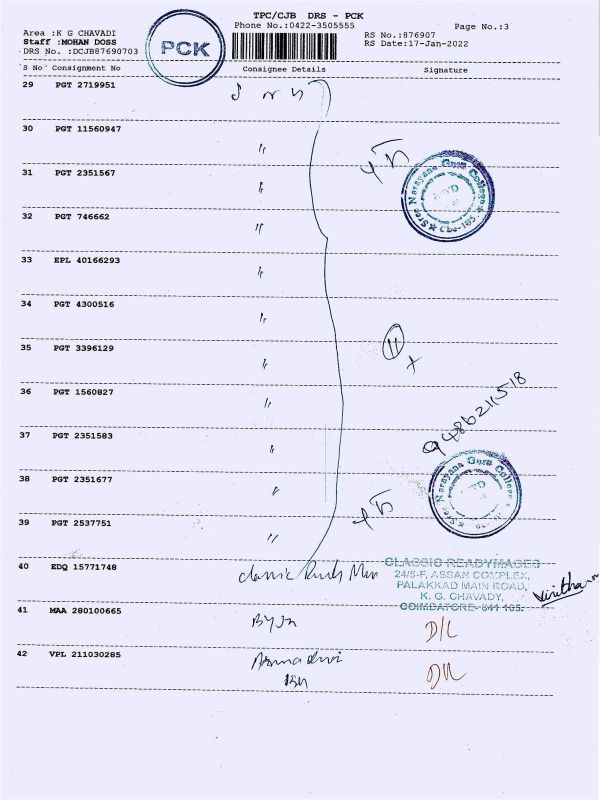 TPC/CJB DRS - PCK
Phone No.:0422-3505555
Page No.:3
Area :K G CHAVADI
Staff :MOHAN DOSS
DRS No. :DCJB87690703
PCK
RS No.:876907
RS Date:17-Jan-2022
S No Consignment No Consignee Details Signature
29 PGT 2719951
30 PGT 11560947 "
31 PGT 2351567 "
32 PGT 746662 "
33 EPL 40166293 "
34 PGT 4300516 "
35 PGT 3396129 "
11
36 PGT 1560827 "
9486211518
37 PGT 2351583 "
38 PGT 2351677 "
39 PGT 2537751 "
40 EDQ 15771748 classic
CLASSIC READYMADES
24/5-F, ASSAN COMPLEX,
PALAKKAD MAIN ROAD,
K. G. CHAVADY,
COIMBATORE- 641 105.
41 MAA 280100665 D/L
42 VPL 211030285
Sree Narayana Guru College
Sree Narayana Guru College